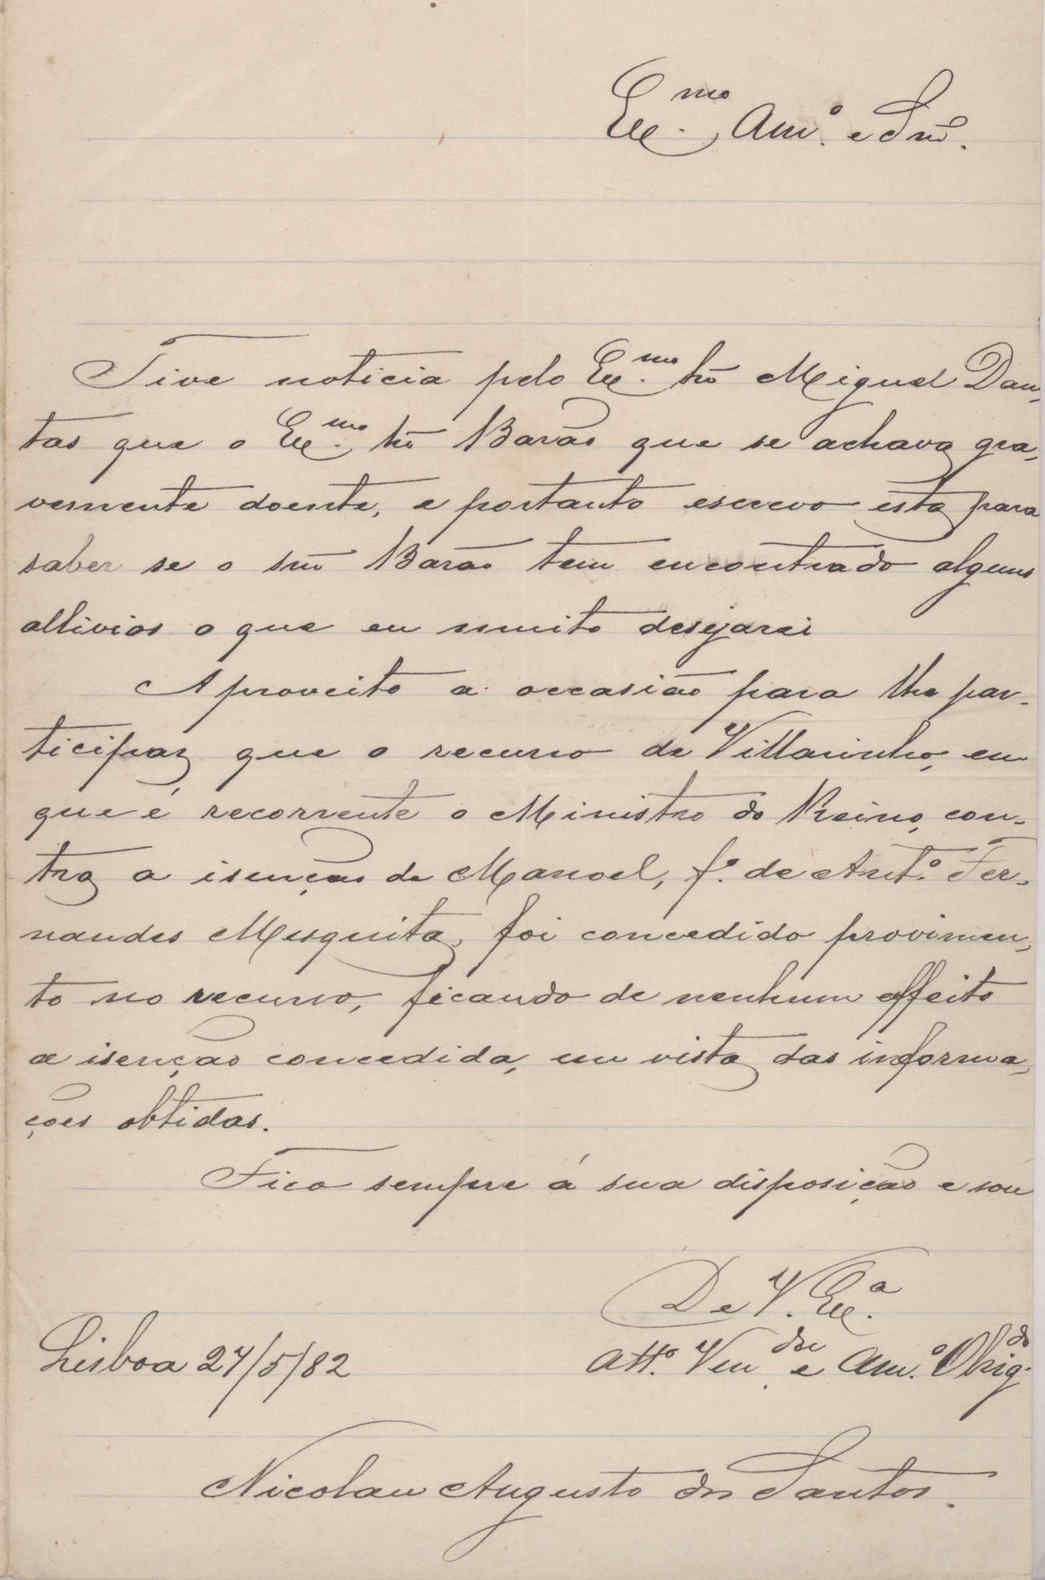 Ex.mo Am.o e Snr.
Tive noticia pelo Ex.mo Snr Miguel Dan-
tas que o Ex.mo Snr Barão que se achava gra-
vemente doente, e portanto escrevo esta para
saber se o Snr Barão tem encontrado alguns
allivios o que eu muito desejarei
Aproveito a occasião para lhe par-
ticipar que o recurso de Villarinho, em
que é recorrente o Ministro do Reino, con-
tra a isenção de Manoel, f.o de Ant.o Fer-
nandes Mesquita, foi concedido provimen-
to no recurso, ficando de nenhum effeito
a isenção concedida, em vista das informa-
ções obtidas.
Fico sempre á sua disposição e sou
De V. Ex.a
Lisboa 24/5/82 Att.o Ven.dor e Am.o Obrig.do
Nicolau Augusto dos Santos.